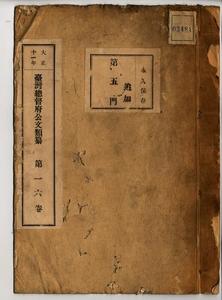 永久保存
追加
第五門
03481
大正
十一年
臺灣總督府公文類纂
第一六卷